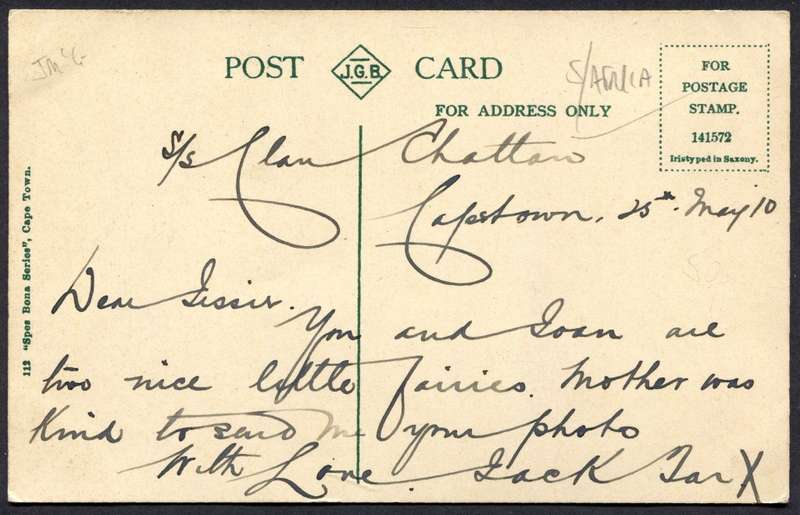 POST J.G.B. CARD
FOR ADDRESS ONLY
FOR
POSTAGE
STAMP.
141572
Iristyped in Saxony.
S/AFRICA
112 "Spes Bona Series", Cape Town.
S/s Clan Chattan
Capetown, 25th May 10
Dear Jessie.
You and Joan are
two nice little fairies. Mother was
Kind to send me your photo
With Love. Jack Tar X